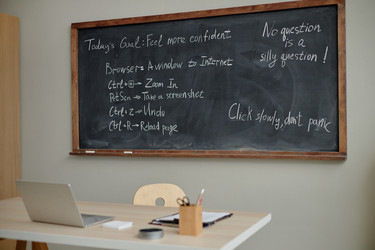 Today's Goal: Feel more confident
Browser = A window to Internet
Ctrl + ⊞ → Zoom In
PrtScn → Take a screenshot
Ctrl + Z → Undo
Ctrl + R → Reload page
No question
is a
silly question!
Click slowly, don't panic